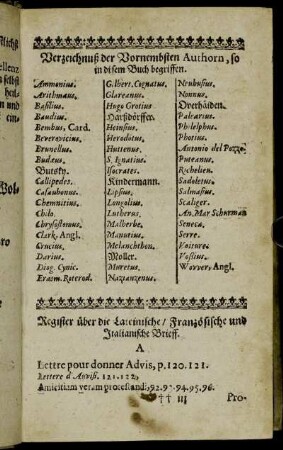 Verzeichnuß der Vornembsten Authorn, so
in disem Buch begriffen.
Ammonius.
Arithmæus.
Basilius.
Baudius.
Bembus, Card.
Beverevicius.
Brunellus.
Budæus
Butsky.
Callipedes.
Casaubonus.
Chemnitius.
Chilo.
Chrysostomus.
Clark, Angl.
Crucius.
Darius.
Diog. Cynic.
Erasm. Roterod.
Gilbert, Cugnatus.
Glareanus.
Hugo Grotius
Harsdörffer.
Heinsius.
Herodotus.
Huttenus.
S. Ignatius.
Isocrates.
Kindermann.
Lipsius.
Longolius.
Lutherus.
Malherbe.
Manutius.
Melanchthon.
Moller.
Muretus.
Nazianzenus.
Nrubusius.
Nonnus.
Overhäiden.
Palearius.
Philelphus.
Photius.
Antonio del Pozze.
Puteanus.
Richelieu.
Sadoletus.
Salmasius.
Scaliger.
An. Mar Schurman
Seneca.
Serre.
Voiture.
Vossius.
Wovver, Angl.
Register über die Lateinische / Französische und
Italianische Brieff.
A
Lettre pour donner Advis, p. 120. 121.
Lettere d'Avvisi. 121. 122.
Amicitiam veram protestandi, 92. 93. 94. 95. 96.
†† iij
Pro-